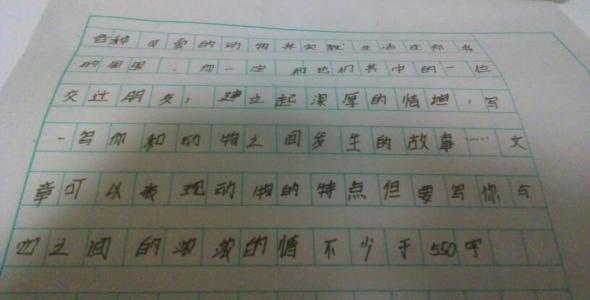 各种可爱的动物其实就生活在你我
的周围.你一定和它们其中的一位
交过朋友,建立起深厚的情谊,写
一写你和动物之间发生的故事……文
章可以表现动物的特点但要写你与
它之间的浓浓的情不少于550字